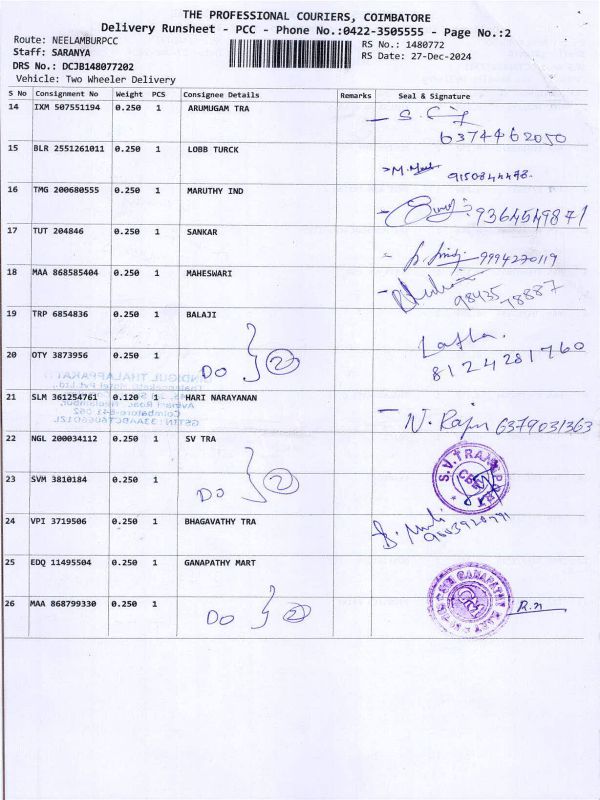 THE PROFESSIONAL COURIERS, COIMBATORE
Delivery Runsheet - PCC - Phone No.:0422-3505555 - Page No.:2
Route: NEELAMBURPCC
Staff: SARANYA
DRS No.: DCJB148077202
Vehicle: Two Wheeler Delivery
RS No.: 1480772
RS Date: 27-Dec-2024
S No Consignment No Weight PCS Consignee Details Remarks Seal & Signature
14 IXM 507551194 0.250 1 ARUMUGAM TRA
6374462050
15 BLR 2551261011 0.250 1 LOBB TURCK
9150844498.
16 TMG 200680555 0.250 1 MARUTHY IND
9364549871
17 TUT 204846 0.250 1 SANKAR
9994270119
18 MAA 868585404 0.250 1 MAHESWARI
98435 78887
19 TRP 6854836 0.250 1 BALAJI
Latha.
8124281760
20 OTY 3873956 0.250 1 DO 2
21 SLM 361254761 0.120 1 HARI NARAYANAN
N. Rajn 6379031363
22 NGL 200034112 0.250 1 SV TRA
S.V.TRANSPORT
CBE
23 SVM 3810184 0.250 1 DO 2
24 VPI 3719506 0.250 1 BHAGAVATHY TRA
25 EDQ 11495504 0.250 1 GANAPATHY MART
GANAPATHY MART
26 MAA 868799330 0.250 1 DO 2
R.n